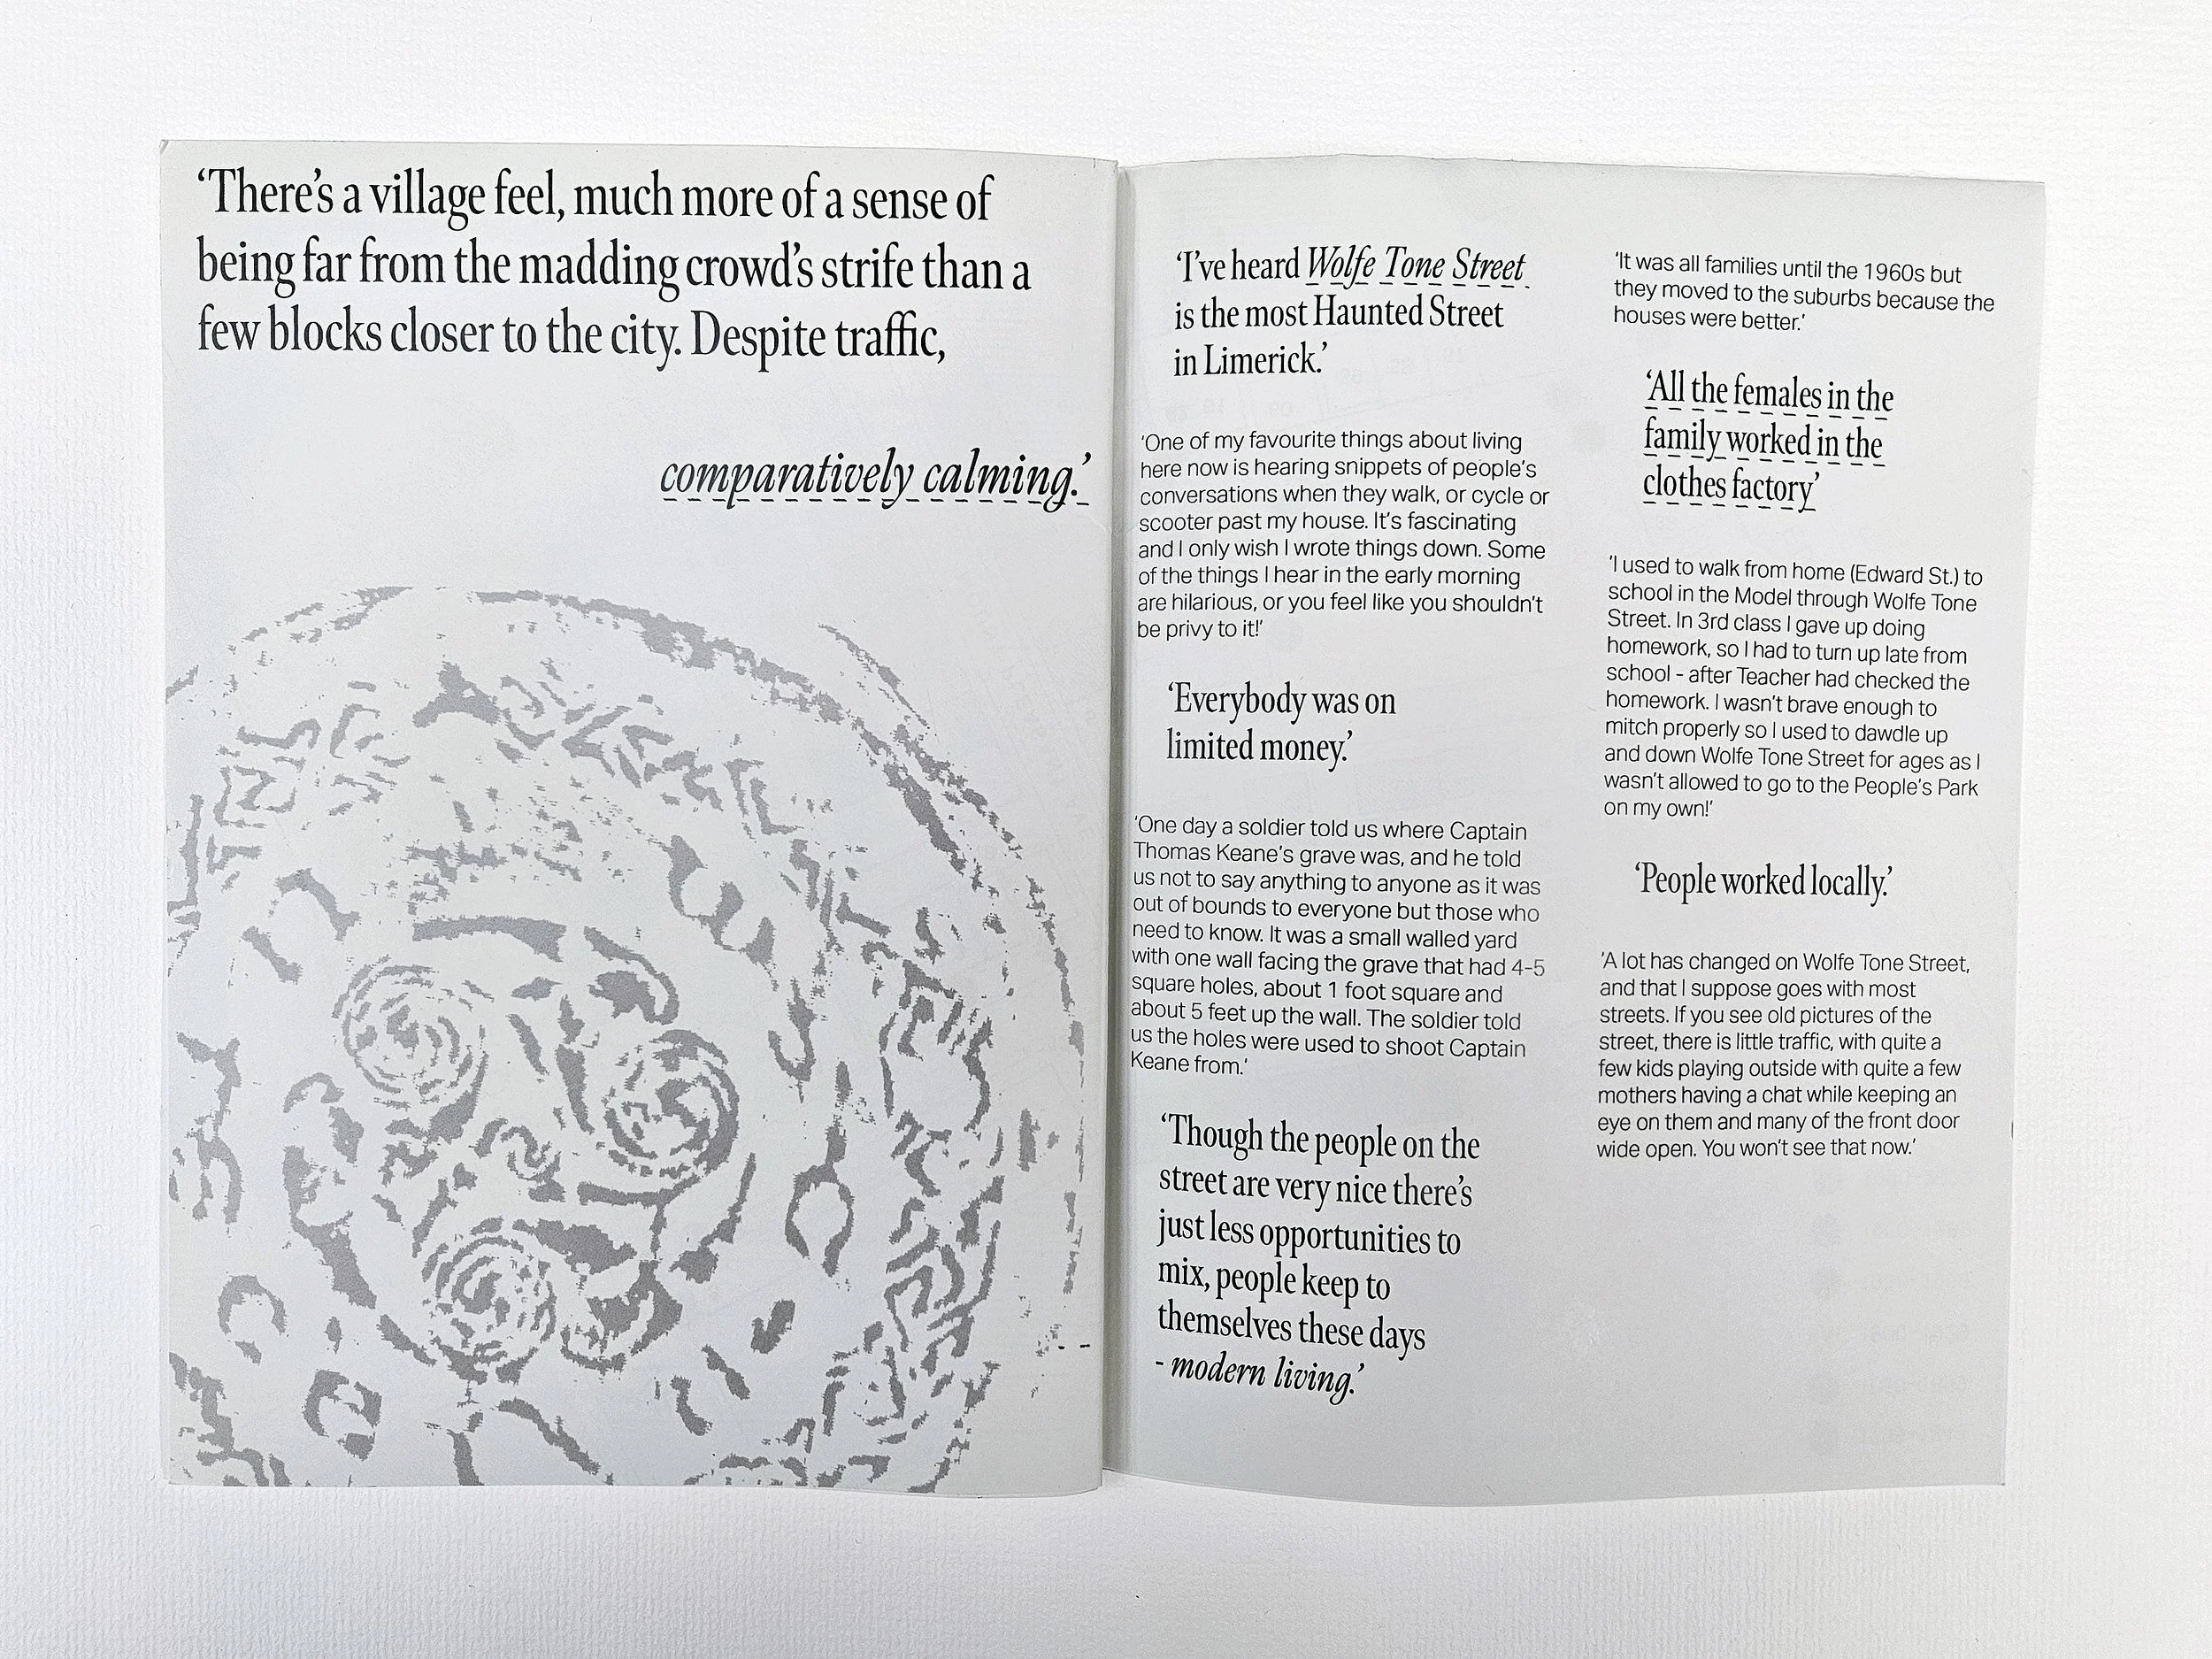 ‘There’s a village feel, much more of a sense of
being far from the madding crowd’s strife than a
few blocks closer to the city. Despite traffic,
comparatively calming.’
‘I’ve heard Wolfe Tone Street
is the most Haunted Street
in Limerick.’
‘One of my favourite things about living
here now is hearing snippets of people’s
conversations when they walk, or cycle or
scooter past my house. It’s fascinating
and I only wish I wrote things down. Some
of the things I hear in the early morning
are hilarious, or you feel like you shouldn’t
be privy to it!’
‘Everybody was on
limited money.’
‘One day a soldier told us where Captain
Thomas Keane’s grave was, and he told
us not to say anything to anyone as it was
out of bounds to everyone but those who
need to know. It was a small walled yard
with one wall facing the grave that had 4-5
square holes, about 1 foot square and
about 5 feet up the wall. The soldier told
us the holes were used to shoot Captain
Keane from.’
‘Though the people on the
street are very nice there’s
just less opportunities to
mix, people keep to
themselves these days
- modern living.’
‘It was all families until the 1960s but
they moved to the suburbs because the
houses were better.’
‘All the females in the
family worked in the
clothes factory’
‘I used to walk from home (Edward St.) to
school in the Model through Wolfe Tone
Street. In 3rd class I gave up doing
homework, so I had to turn up late from
school - after Teacher had checked the
homework. I wasn’t brave enough to
mitch properly so I used to dawdle up
and down Wolfe Tone Street for ages as I
wasn’t allowed to go to the People’s Park
on my own!’
‘People worked locally.’
‘A lot has changed on Wolfe Tone Street,
and that I suppose goes with most
streets. If you see old pictures of the
street, there is little traffic, with quite a
few kids playing outside with quite a few
mothers having a chat while keeping an
eye on them and many of the front door
wide open. You won’t see that now.’